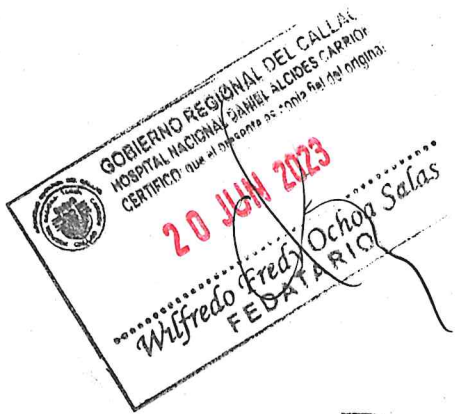 GOBIERNO REGIONAL DEL CALLAO
HOSPITAL NACIONAL DANIEL ALCIDES CARRION
CERTIFICO: que el presente es copia fiel del original
20 JUN 2023
Wilfredo Fredy Ochoa Salas
FEDATARIO